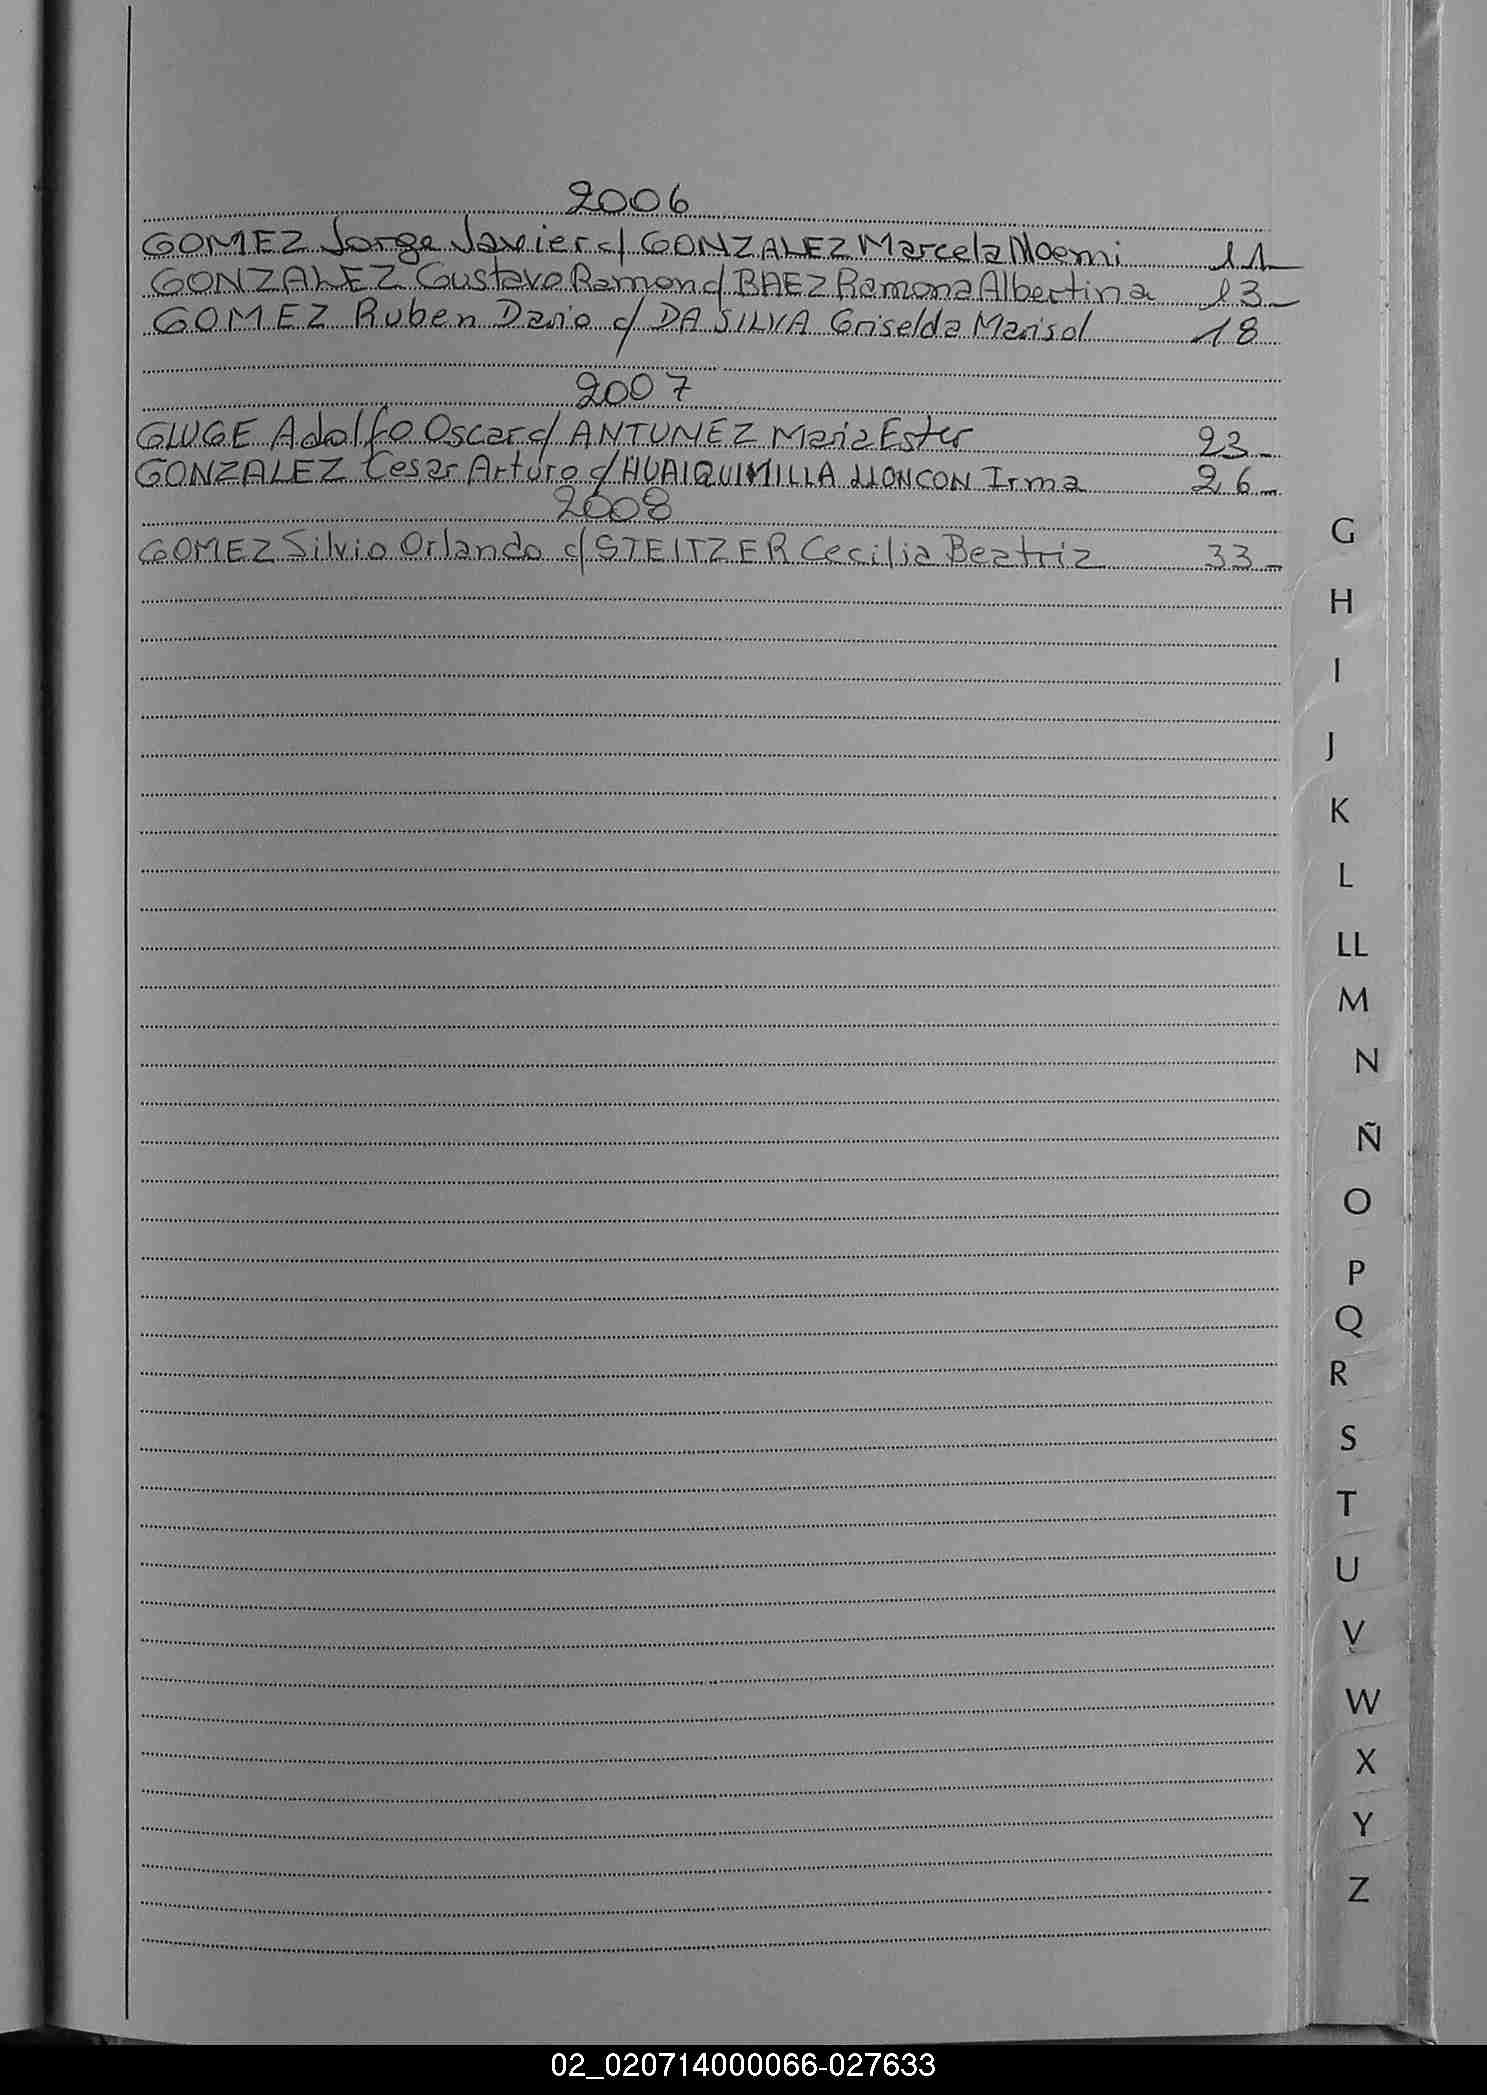 2006
GOMEZ Jorge Javier c/ GONZALEZ Marcela Noemi 11
GONZALEZ Gustavo Ramon c/ BAEZ Ramona Albertina 13
GOMEZ Ruben Dario c/ DA SILVA Griselda Marisol 18
2007
GLUGE Adolfo Oscar c/ ANTUNEZ Maria Ester 23
GONZALEZ Cesar Arturo c/ HUAIQUIMILLA LLONCON Irma 26
2008
GOMEZ Silvio Orlando c/ STEITZER Cecilia Beatriz 33
G
H
I
J
K
L
LL
M
N
Ñ
O
P
Q
R
S
T
U
V
W
X
Y
Z
02_020714000066-027633